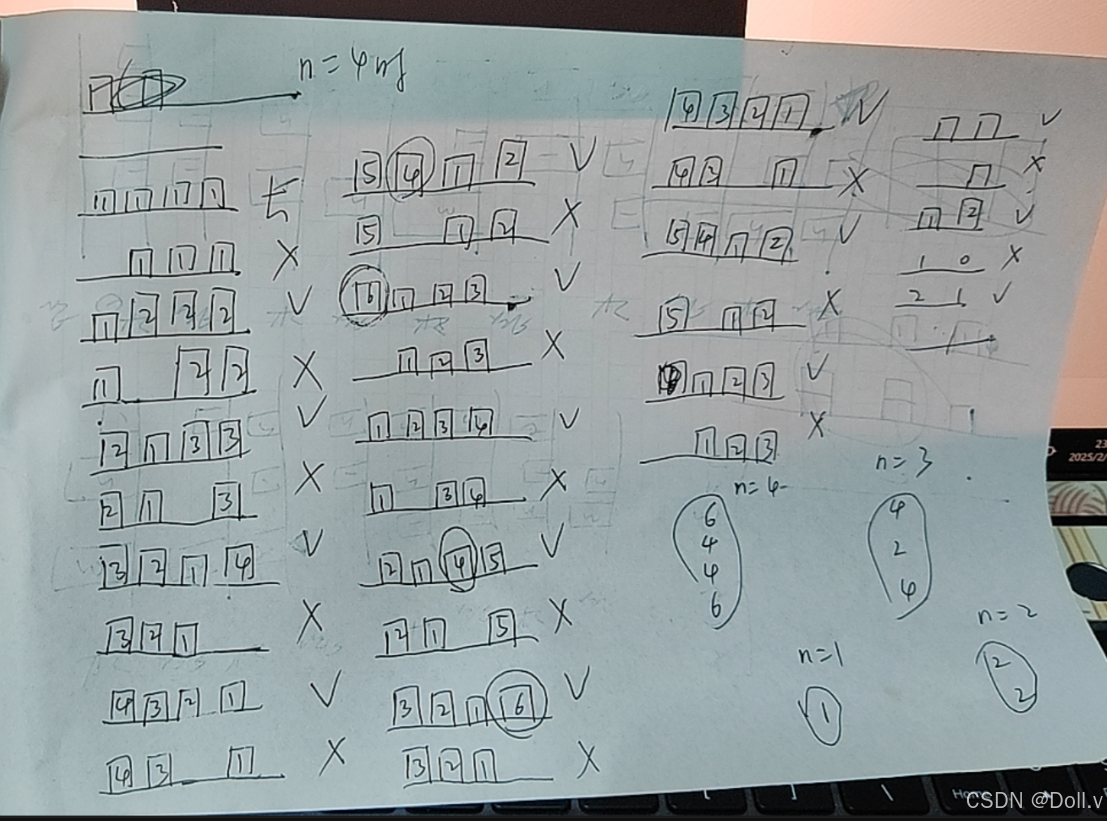 n=4时
1 1 1 1 长
1 1 1 X
1 2 2 2 V
1 2 2 X
2 1 3 3 V
2 1 3 X
3 2 1 4 V
3 2 1 X
4 3 2 1 V
4 3 1 X
5 4 1 2 V
5 1 2 X
6 1 2 3 V
1 2 3 X
1 2 3 4 V
1 3 4 X
2 1 4 5 V
2 1 5 X
3 2 1 6 V
3 2 1 X
4 3 2 1 V
4 2 1 X
5 4 1 2 V
5 1 2 X
1 2 3 V
1 2 3 X
1 1 V
1 X
1 2 V
1 0 X
2 1 V
n=4
6
4
4
6
n=3
4
2
4
n=1
1
n=2
2
2
23
2025/2/
Home
CSDN @Doll.v